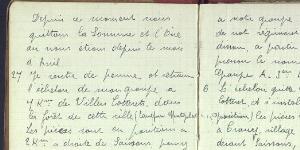 Depuis ce moment nous
quittons la Somme et l'Oise
où nous étions depuis le mois
d'Avril
27 Je rentre de perme, et retrouve
l'échelon de mon groupe à
4 Km de Villers Cotterets, dans
la forêt de cette ville
Les pièces sont en position à
2 Km à droite de Soissons
à notre groupe
de not régiment
, a partir
person le nom
Groupe A.
6 L'échelon quitte
Cotteret et s'install
position), les pièces
à Crouy, village
devant Soissons,